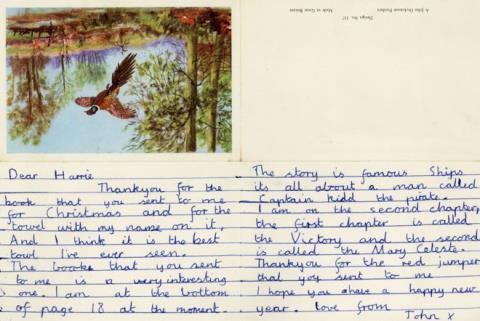 A John Dickinson Product
Design No. 117
Made in Great Britain
Dear Harrie
Thankyou for the
book that you sent to me
for Christmas and for the
towel with my name on it,
And I think it is the best
towl I've ever seen.
The book that you sent
to me is a very interesting
one. I am at the bottom
of page 18 at the moment.
The story is famous Ships
its all about a man called
Captain kidd the pirate.
I am on the second chapter,
the first chapter is called
the Victory and the second
is called the Mary Celeste.
Thankyou for the red jumper
that you sent to me
I hope you have a happy new
year. love from
John x